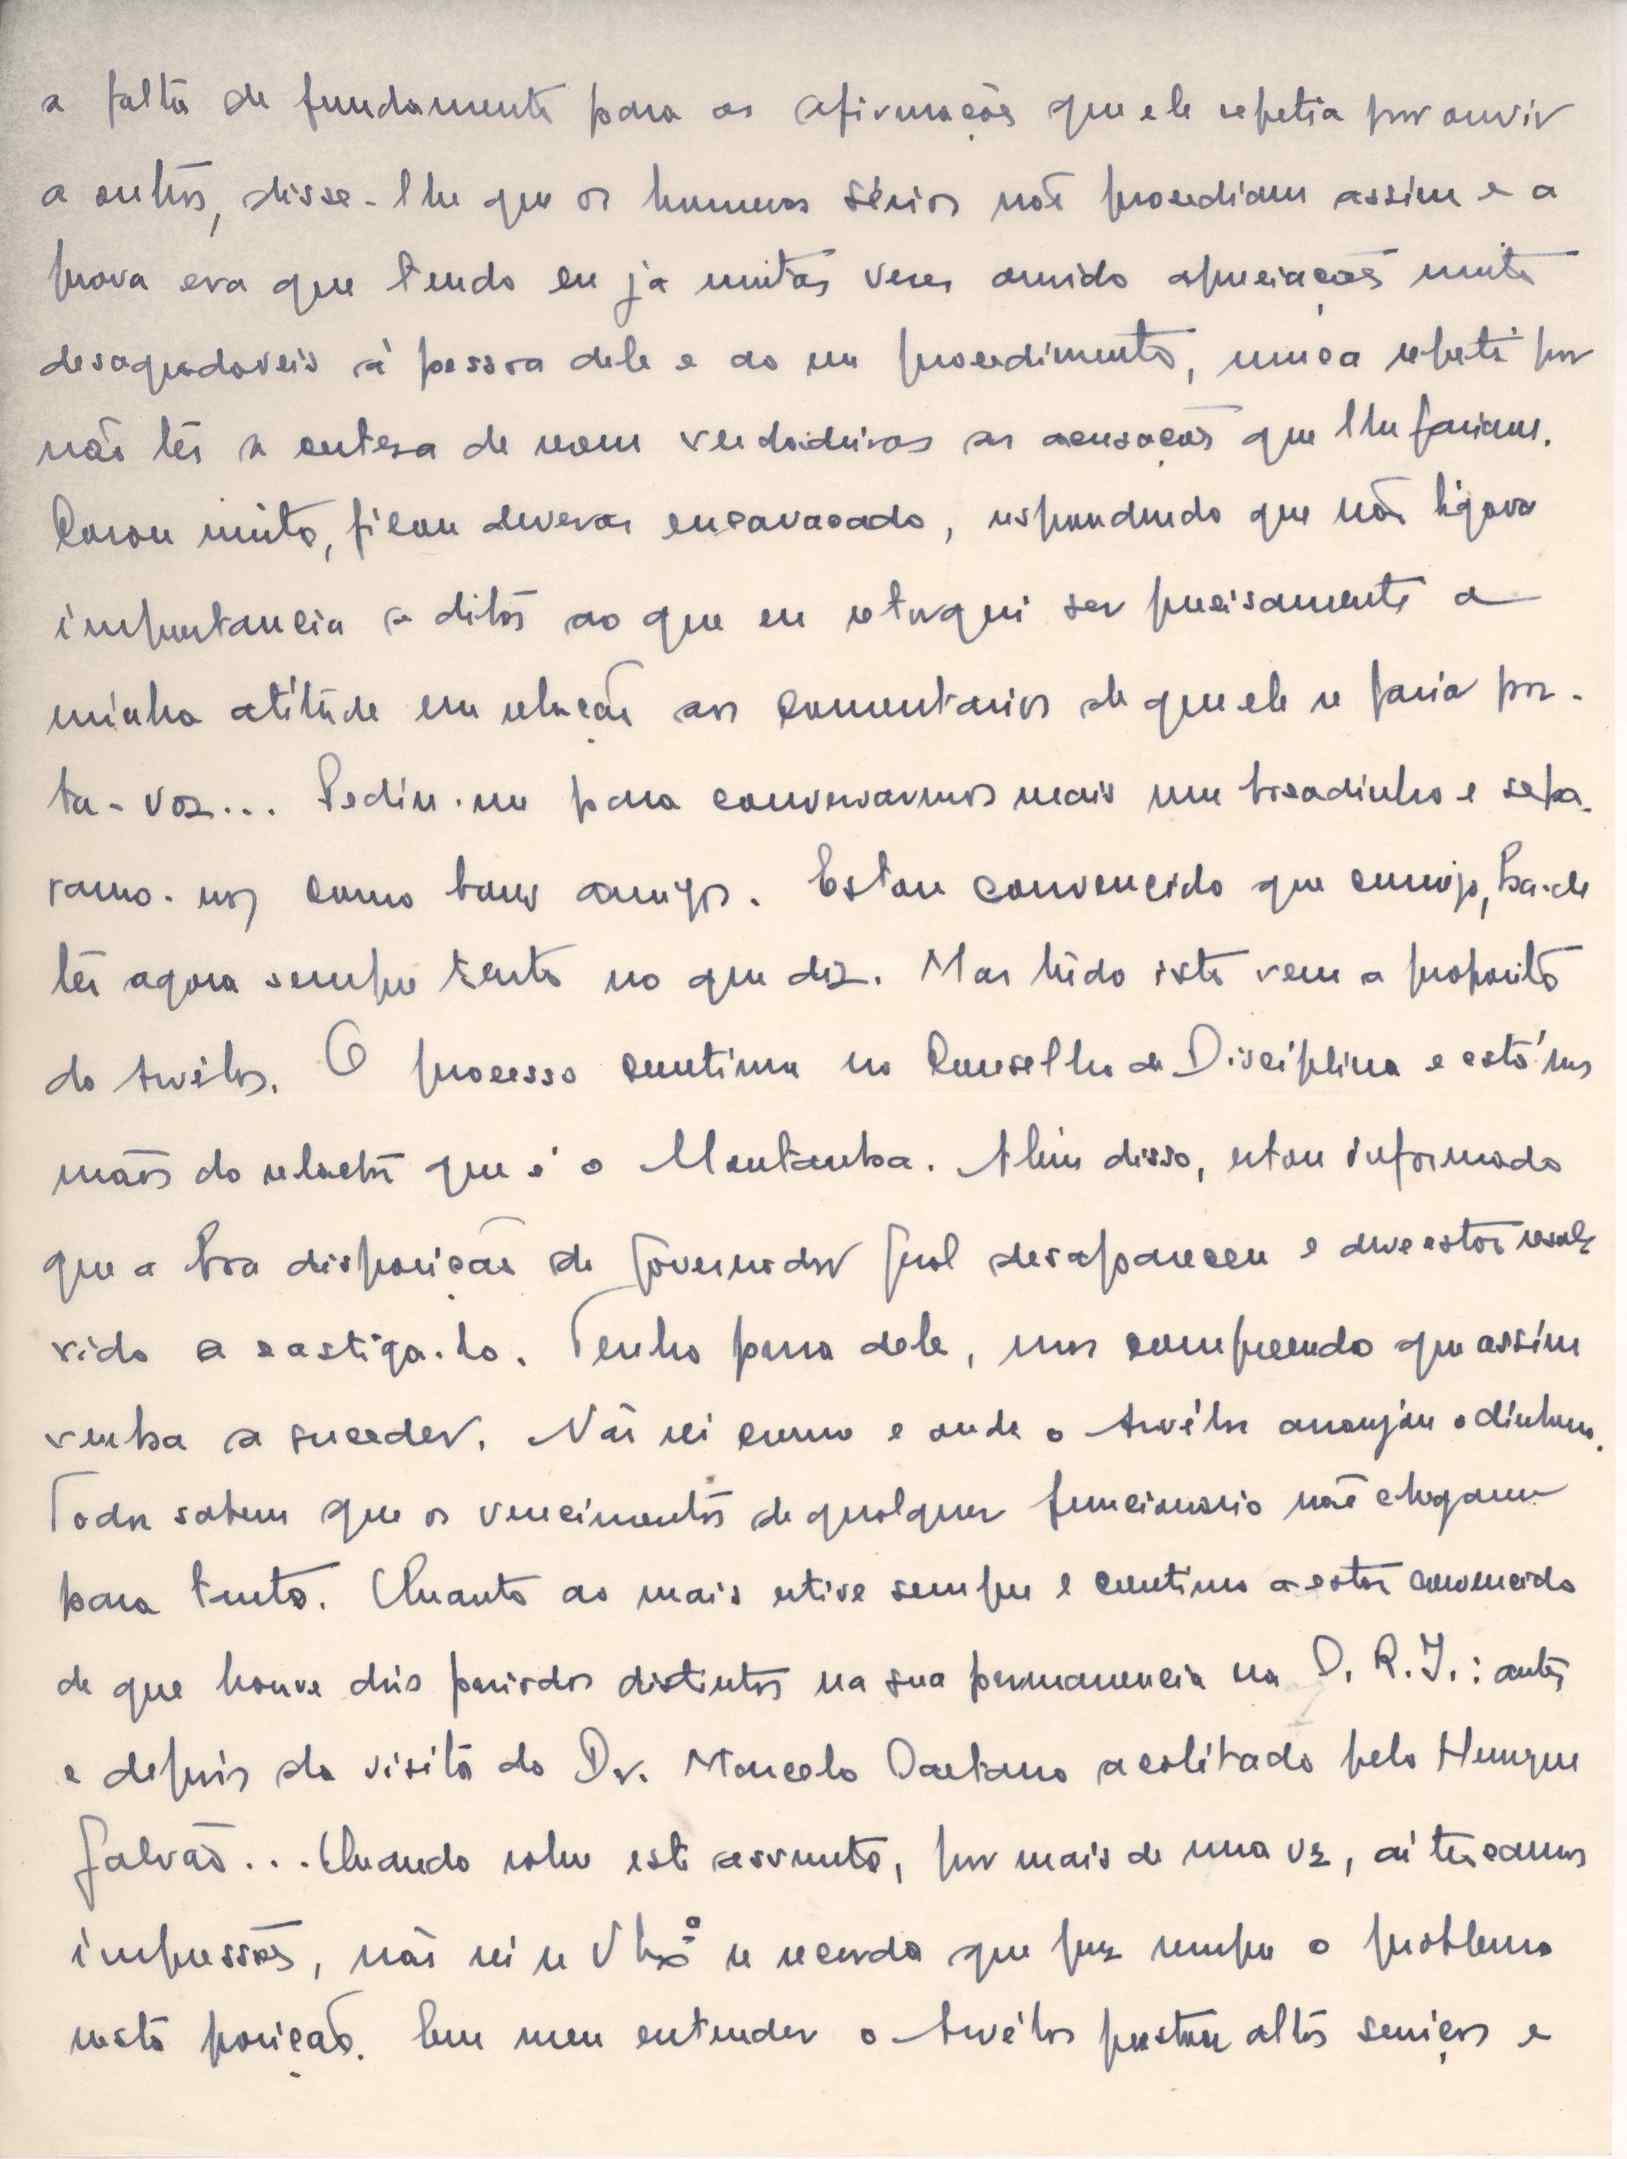 a falta de fundamento para as afirmações que ele repetia por ouvir
a outros, disse-lhe que os homens sérios não procediam assim e a
prova era que tendo eu já muitas vezes ouvido apreciações muito
desagradaveis á pessoa dele e ao seu procedimento, nunca repeti por
não ter a certeza de serem verdadeiras as acusações que lhe faziam.
Corou muito, ficou deveras encavacado, respondendo que não ligava
importancia a ditos ao que eu retorqui ser precisamente a
minha atitude em relação aos comentarios de que ele se fazia por-
ta-voz... Pediu-me para conversarmos mais um bocadinho e sepa-
ramo-nos como bons amigos. Estou convencido que comigo, ha-de
ter agora sempre tento no que diz. Mas tudo isto vem a proposito
do Arvélos. O processo continua no Conselho de Disciplina e está nas
mãos do relator que é o Montanha. Além disso, estou informado
que a boa disposição do Governador Geral desapareceu e deve estar resol-
vido a castiga-lo. Tenho pena dele, mas compreendo que assim
venha a suceder. Não sei como e onde o Arvélos arranjou o dinheiro.
Todos sabem que os vencimentos de qualquer funcionario não chegam
para tanto. Quanto ao mais estive sempre e continuo a estar convencido
de que houve dois periodos distintos na sua permanencia na D. R. I.: antes
e depois da visita do Dr. Marcelo Caetano acolitado pelo Henrique
Galvão... Quando sobre este assunto, por mais de uma vez, aí trocamos
impressões, não sei se se recorda que puz sempre o problema
nesta posição. Em meu entender o Arvélos prestou altos serviços e